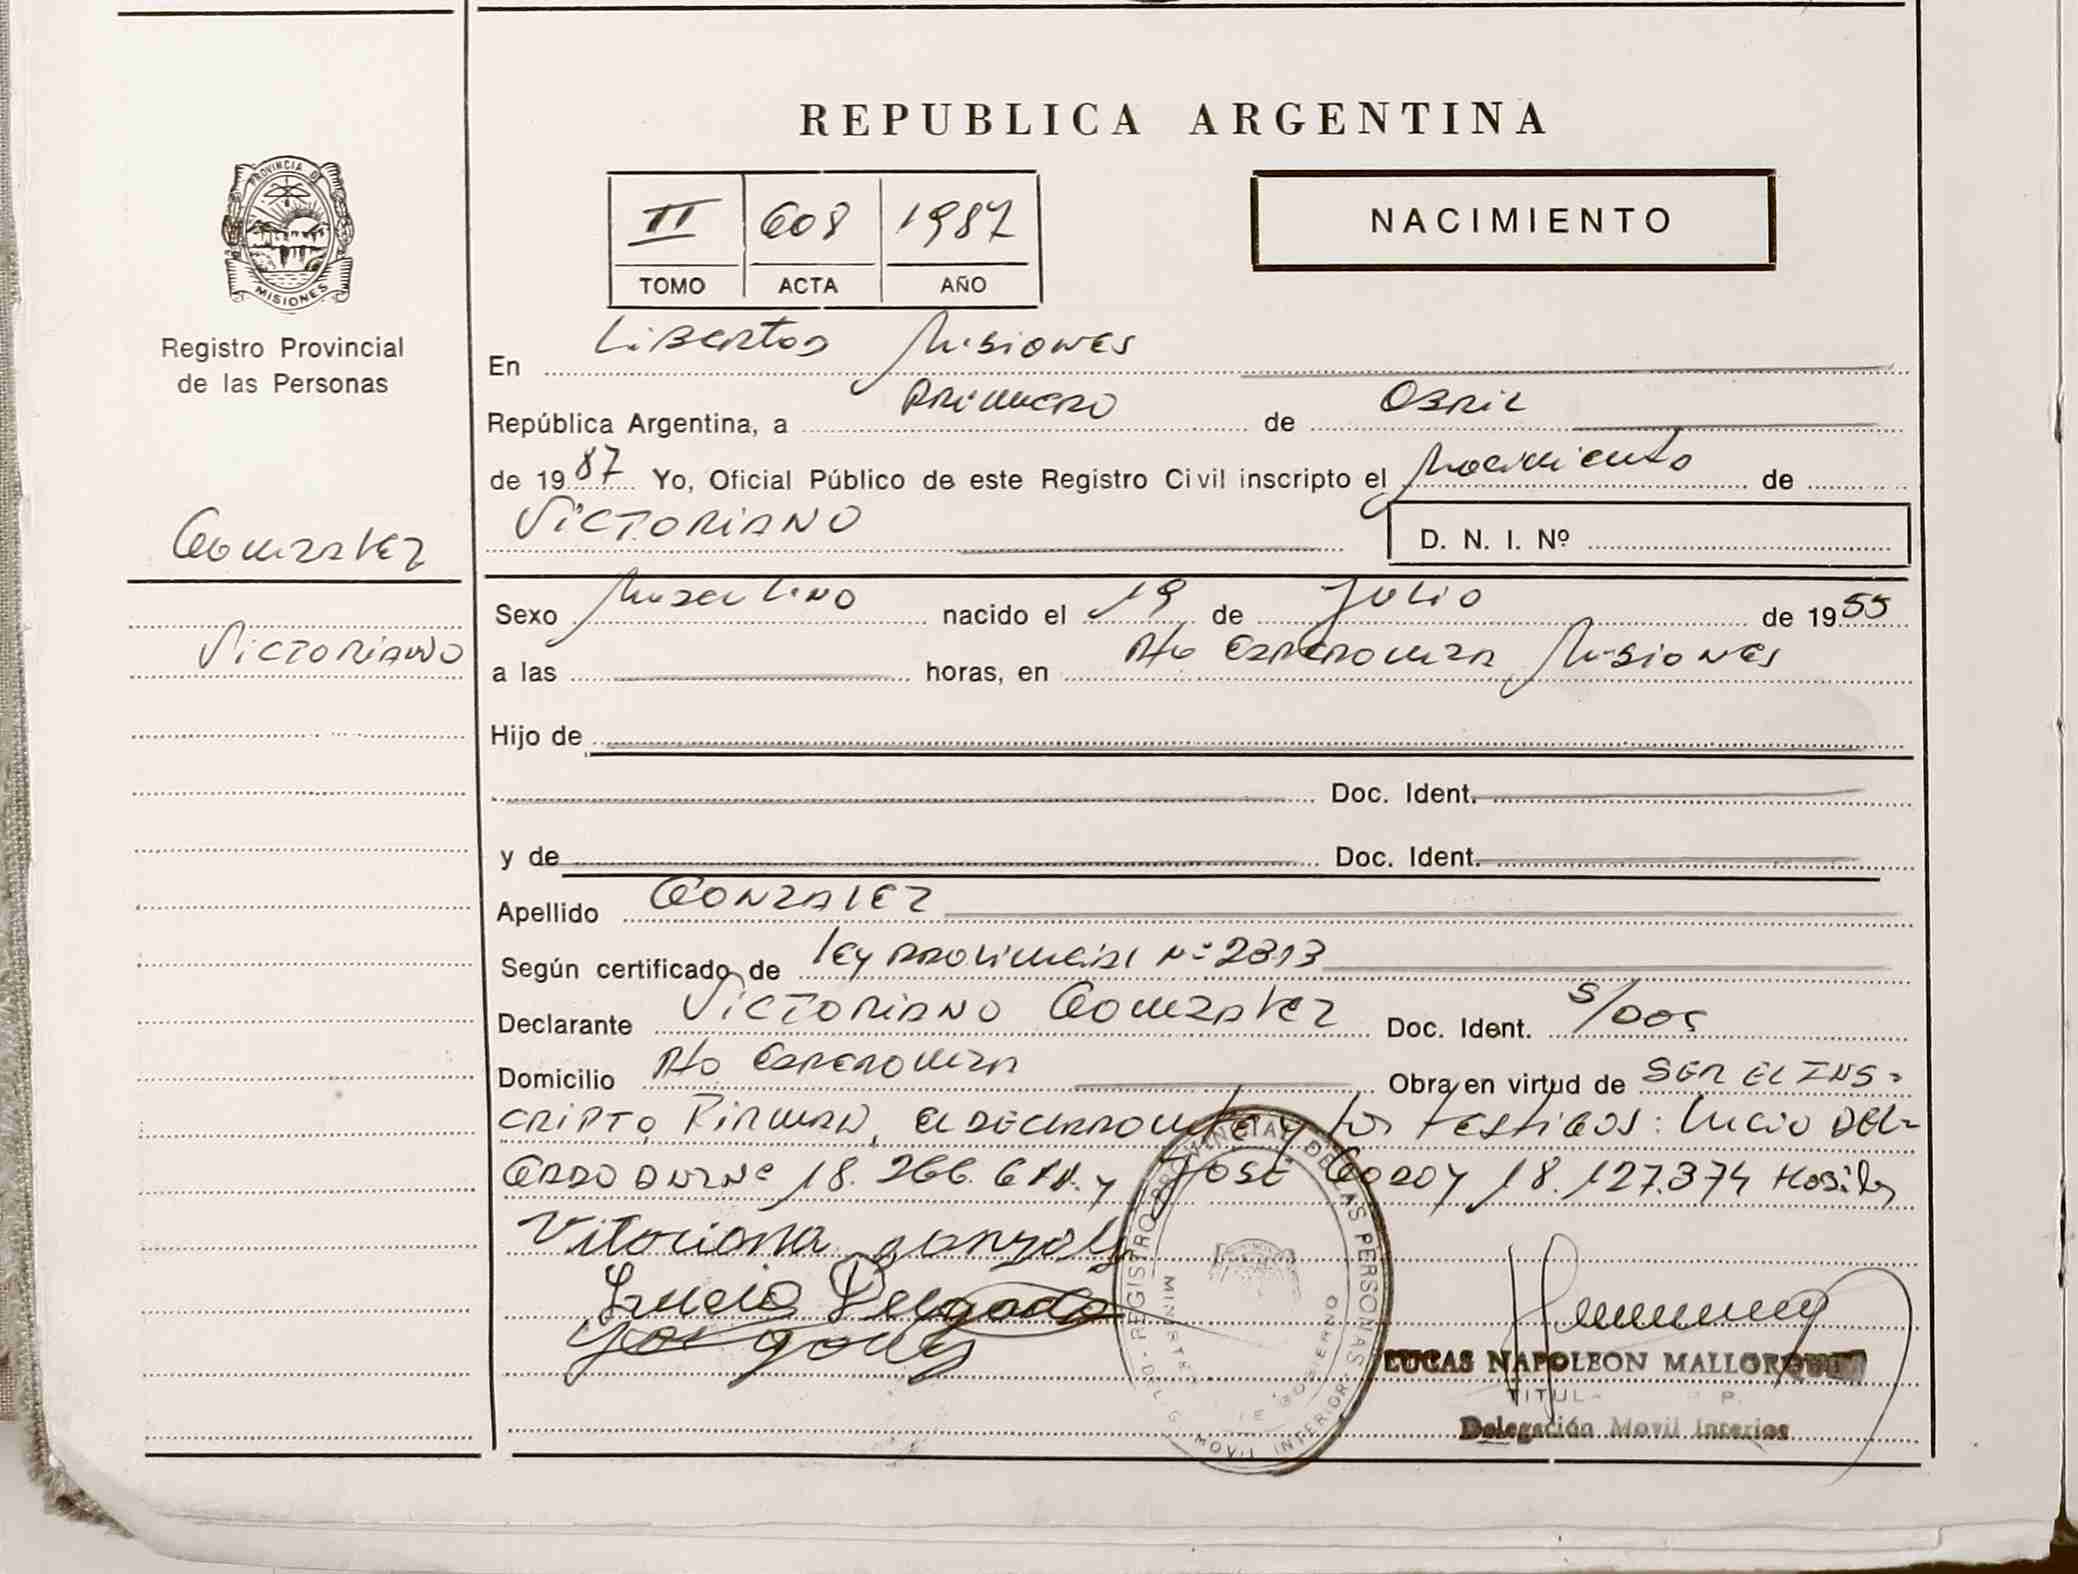 REPUBLICA ARGENTINA
PROVINCIA D
MISIONES
II 608 1987
TOMO ACTA AÑO
NACIMIENTO
Registro Provincial
de las Personas
En Libertad Misiones
República Argentina, a primero de Abril
de 1987 Yo, Oficial Público de este Registro Civil inscripto el Nacimiento de
VICTORIANO D. N. I. Nº
Gonzalez
Victoriano
Sexo Masculino nacido el 19 de Julio de 1955
a las horas, en Pto Esperanza Misiones
Hijo de
Doc. Ident.
y de Doc. Ident.
Apellido GONZALEZ
Según certificado de ley provincial Nº 2313
Declarante Victoriano Gonzalez Doc. Ident. S/Doc
Domicilio Pto Esperanza Obra en virtud de SER EL INS-
CRIPTO Firman, el declarante y los testigos: Lucio DEL-
GADO DNI Nº 18.266. y JOSE GODOY 18.127.374
Vitoriana gonzalez
Lucio Delgado
REGISTRO PROVINCIAL DE LAS PERSONAS
MINISTE DE GOBIERNO
DELG. MOVIL INTERIOR
LUCAS NAPOLEON MALLORQUIN
TITUL P.
Delegación Movil Interior